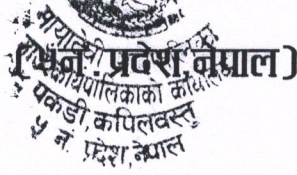 (५ नं. प्रदेश, नेपाल)
मायादेवी
कार्यपालिकाको कार्यालय
पकडी, कपिलवस्तु
५ नं. प्रदेश, नेपाल